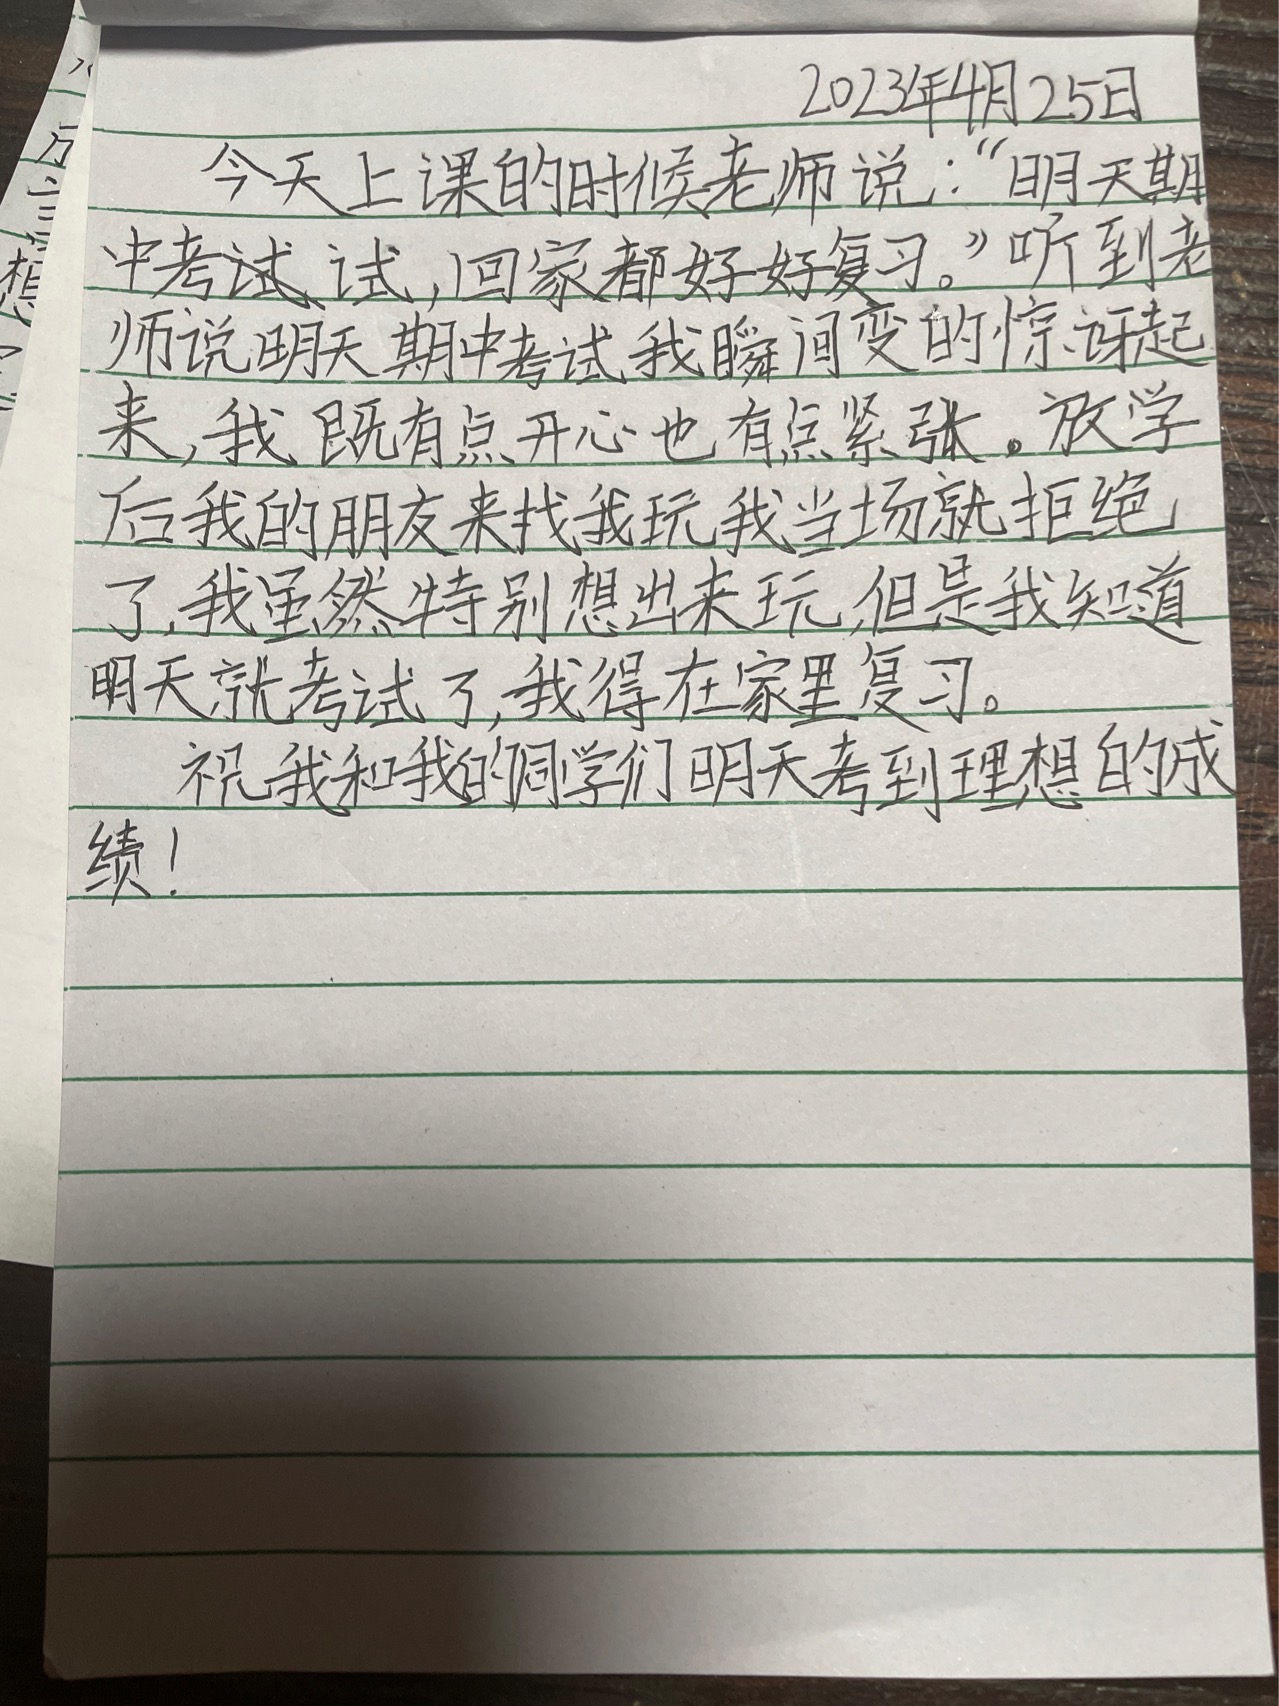 2023年4月25日
今天上课的时候老师说：“明天期
中考试试，回家都好好复习。”听到老
师说明天期中考试我瞬间变的惊讶起
来，我既有点开心也有点紧张。放学
后我的朋友来找我玩我当场就拒绝
了，我虽然特别想出来玩，但是我知道
明天就考试了，我得在家里复习。
祝我和我的同学们明天考到理想的成
绩！
想